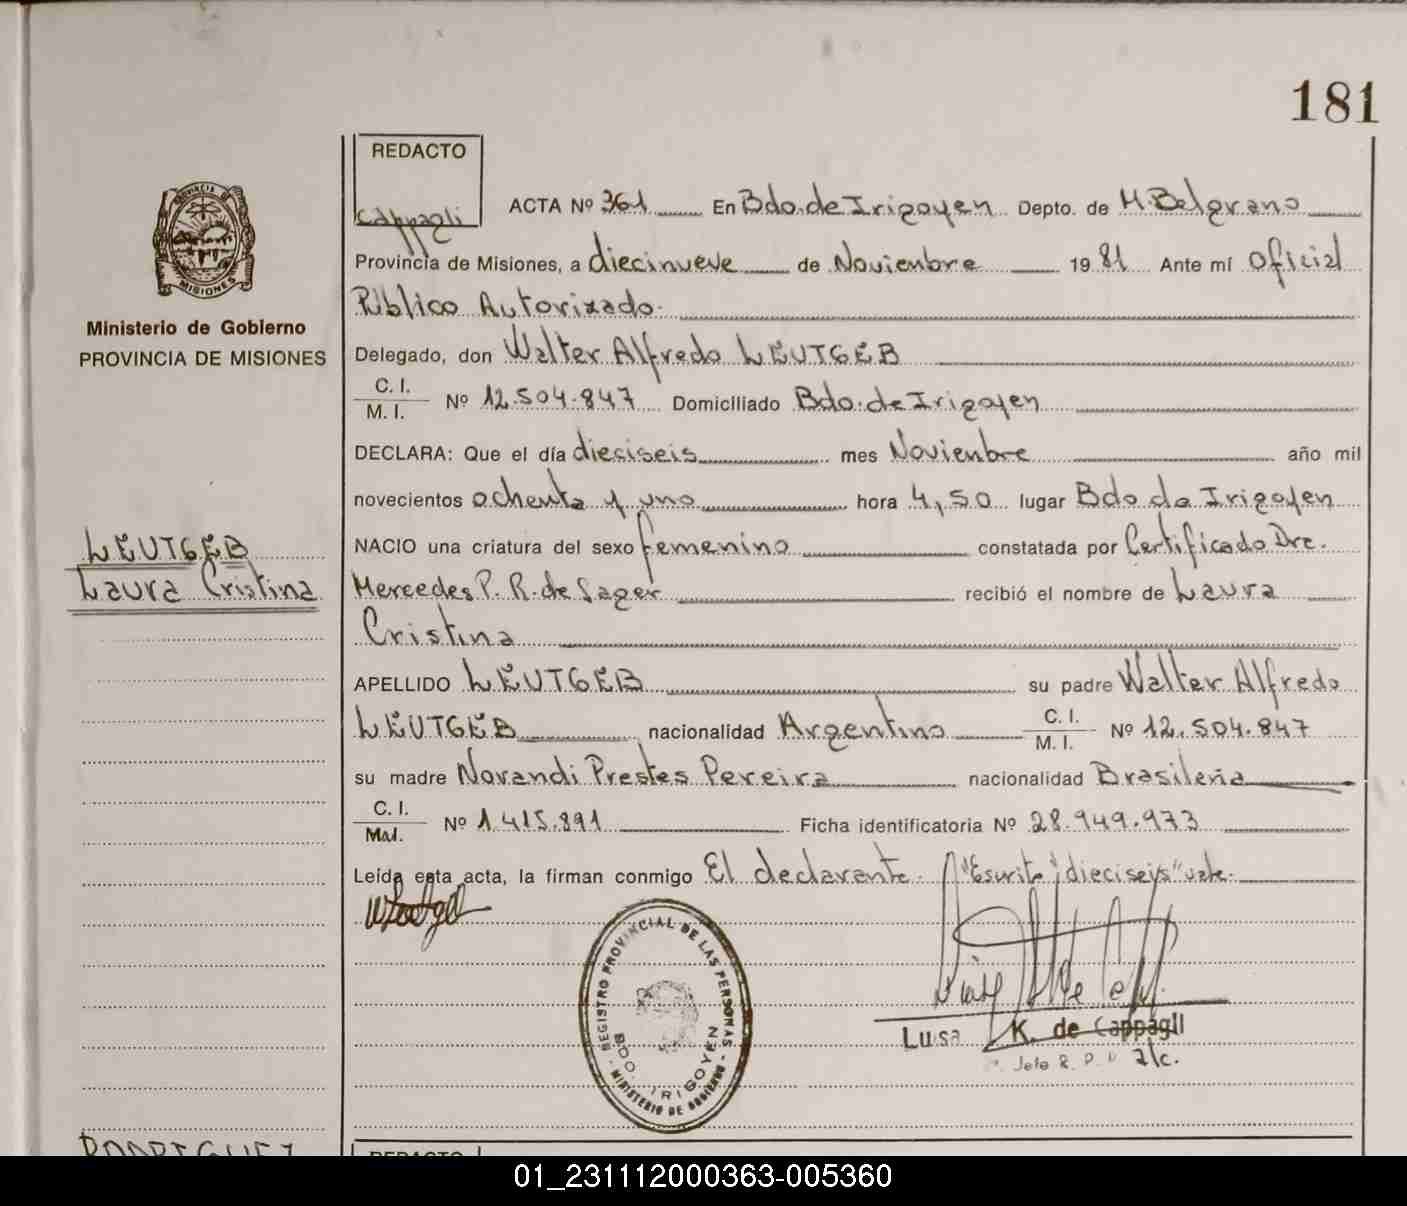 181
REDACTO
Cappagli
ACTA Nº 361 En Bdo. de Irigoyen Depto. de M. Belgrano
Provincia de Misiones, a diecinueve de Noviembre 19 81 Ante mí Oficial
Público Autorizado.
Delegado, don Walter Alfredo LEUTGEB
C. I. / M. I. Nº 12.504.847 Domiciliado Bdo. de Irigoyen
DECLARA: Que el día dieciseis mes Noviembre año mil
novecientos ochenta y uno hora 4,50 lugar Bdo de Irigoyen
NACIO una criatura del sexo femenino constatada por Certificado Dra.
Mercedes P. R. de Sager recibió el nombre de Laura
Cristina
APELLIDO LEUTGEB su padre Walter Alfredo
LEUTGEB nacionalidad Argentino C. I. / M. I. Nº 12.504.847
su madre Norandi Prestes Pereira nacionalidad Brasileña
C. I. / M.I. Nº 1.415.891 Ficha identificatoria Nº 28.949.973
Leída esta acta, la firman conmigo El declarante. "Escrito "dieciseis" vale.
REGISTRO PROVINCIAL DE LAS PERSONAS
BDO. IRIGOYEN
MINISTERIO DE GOBIERNO
Luisa K. de Cappagli
Jefe R. P. a/c.
PROVINCIA DE
MISIONES
Ministerio de Gobierno
PROVINCIA DE MISIONES
LEUTGEB
Laura Cristina
RODRIGUEZ
REDACTO
01_231112000363-005360